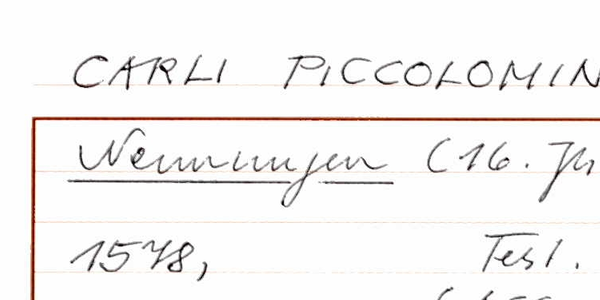 CARLI PICCOLOMIN
Nennungen (16. Jh
1578,
Test.